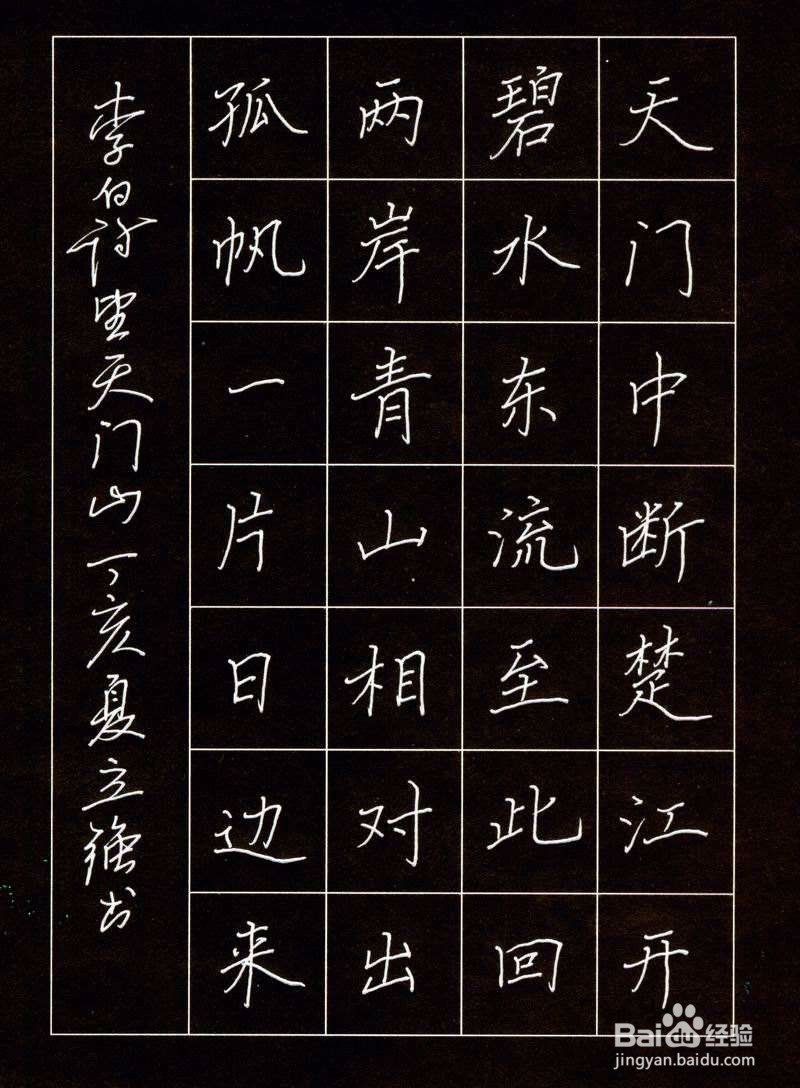 天门中断楚江开
碧水东流至此回
两岸青山相对出
孤帆一片日边来
李白诗望天门山丁亥夏立强书
Bai 经验
jingyan.baidu.com